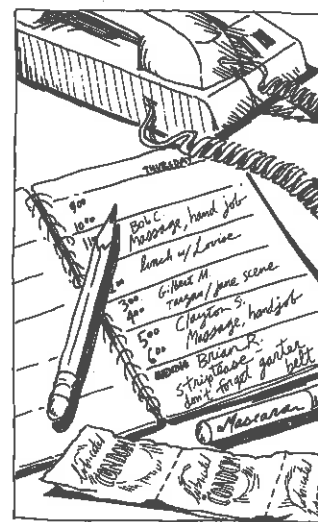 THURSDAY
9:00
10:00
Bob C.
11
Massage, hand job
00
lunch w/ Louise
3:00 Gilbert M.
4:00 Tarzan/Jane scene
5:00 Clayton S.
6:00 Massage, handjob
EVENING Brian R.
Striptease
don't forget garter
belt
Mascara
Lubricated
CONDOM
Lubricated
CONDOM
Lubricated